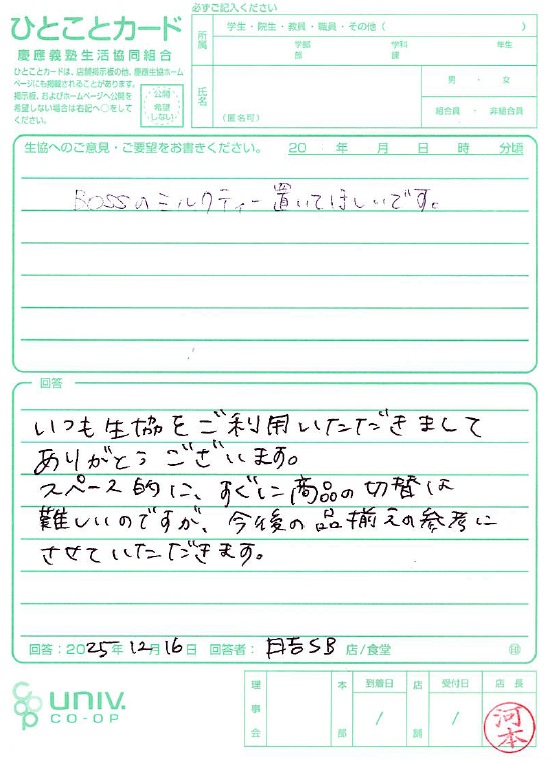 必ずご記入ください
ひとことカード
慶應義塾生活協同組合
ひとことカードは、店舗掲示板の他、慶應生協ホーム
ページにも掲載されることがあります。
掲示板、およびホームページへ公開を
希望しない場合は右記へ○をして
ください。
公開
希望
しない
所属
学生・院生・教員・職員・その他（　　　）
学部　学科　年生
部　課
氏名
（匿名可）
男・女
組合員・非組合員
生協へのご意見・ご要望をお書きください。　20　年　月　日　時　分頃
BOSSのミルクティー置いてほしいです。
回答
いつも生協をご利用いただきまして
ありがとうございます。
スペース的に、すぐに商品の切替は
難しいのですが、今後の品揃えの参考に
させていただきます。
回答：2025年12月16日　回答者：日吉SB　店/食堂　印
coop univ.
CO-OP
理事会
本部
到着日
/
店舗
受付日
/
店長
河本